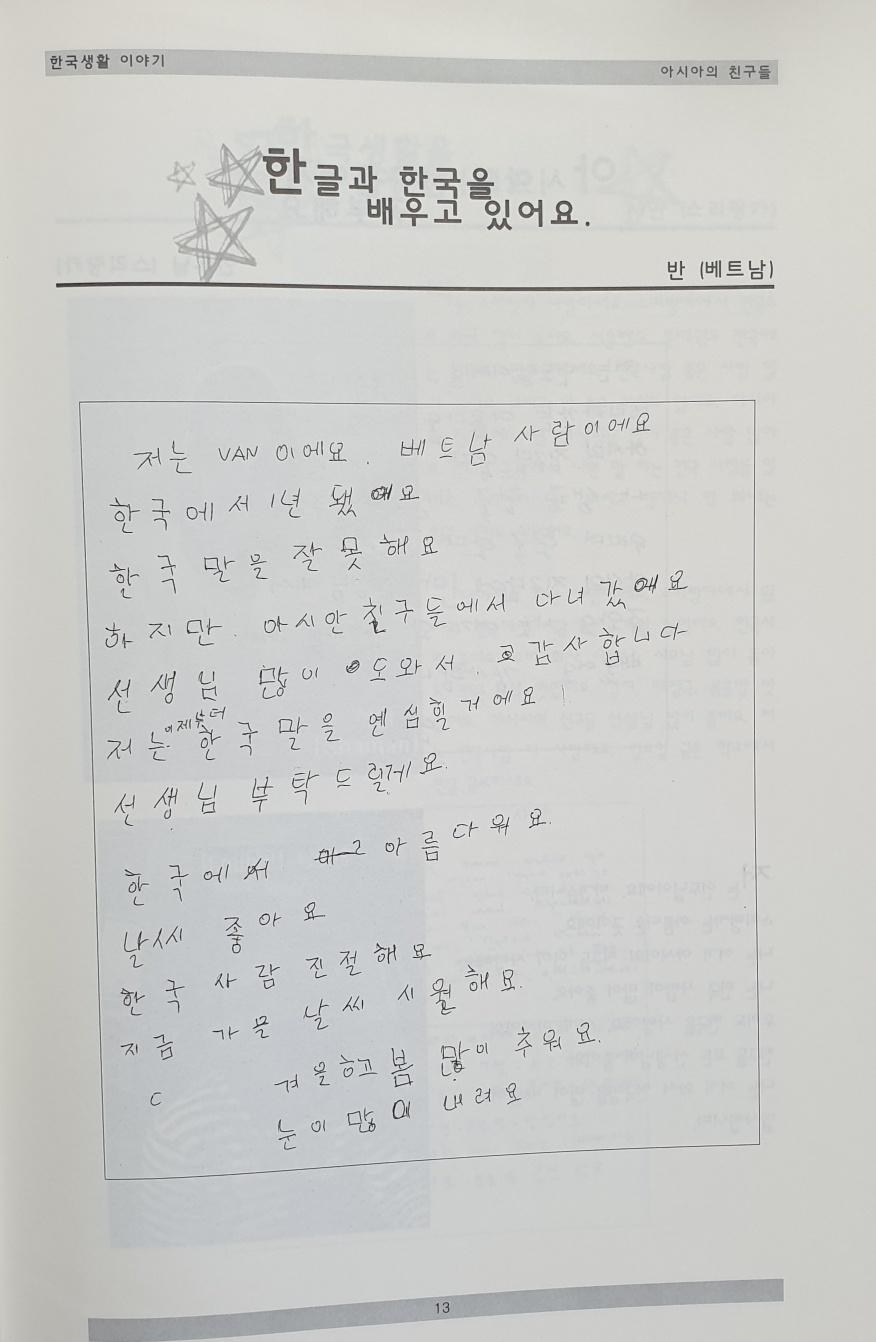 한국생활 이야기
아시아의 친구들
한글과 한국을
배우고 있어요.
반 (베트남)
저는 VAN 이에요. 베트남 사람이에요
한국에서 1년 됐에요
한국말을 잘 못해요
하지만. 아시안 친구들에서 다녀갔에요
선생님 많이 도와서. 감사합니다
저는 이제부터 한국말을 엔심힐거에요!
선생님 부탁드릴게요.
한국에서 아름다워요.
날시 좋아요
한국사람 진절해요
지금 가믈 날씨 시월해요.
겨울하고 봄 많이 추워요.
눈이 많이 내려요
13